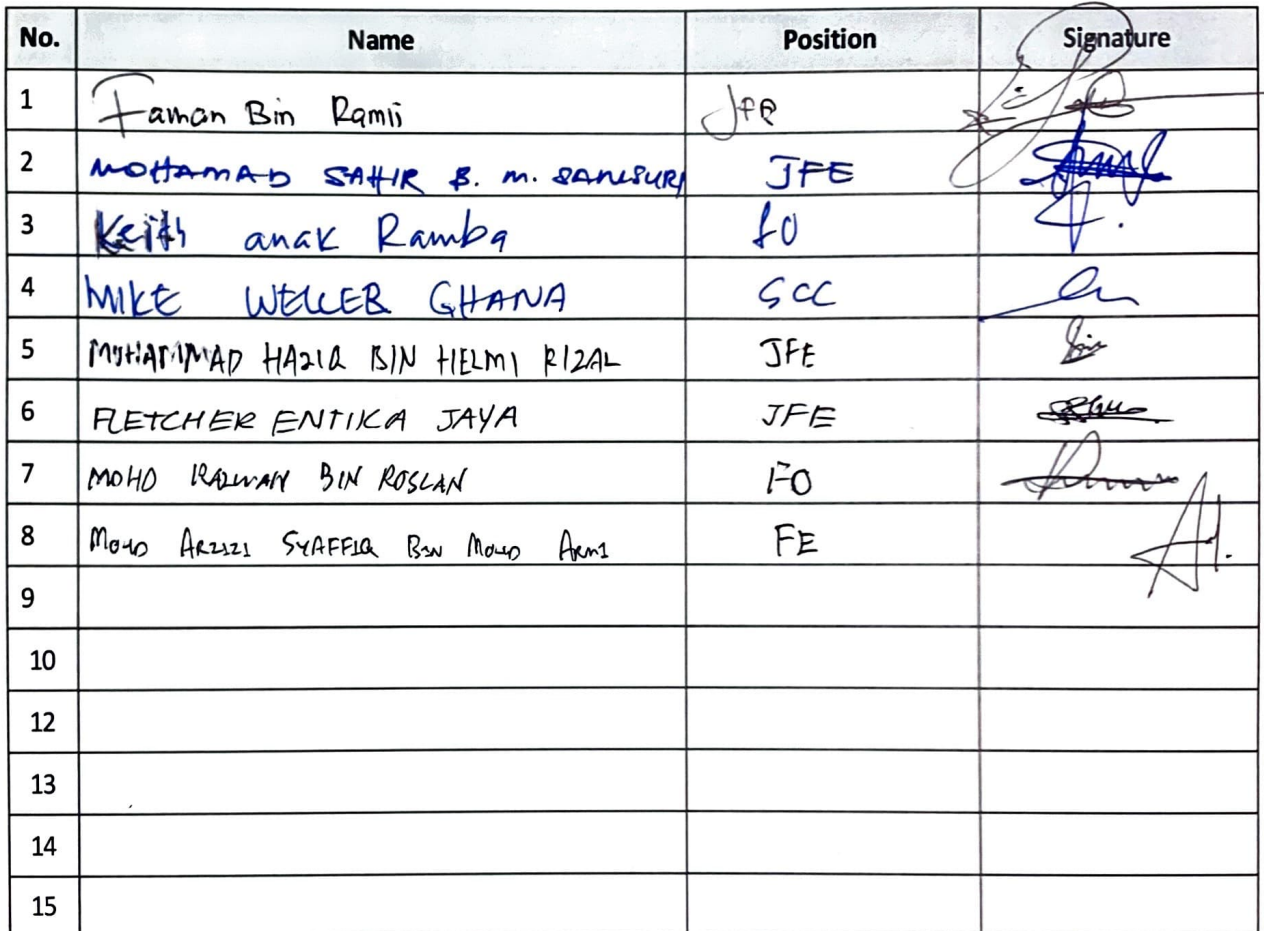 No. Name Position Signature
1 Faman Bin Ramli JFE
2 MOHAMAD SAHIR B. M. SANUSURI JFE
3 Keith anak Ramba FO
4 MIKE WELLER GHANA SCC
5 MUHAMMAD HAZIQ BIN HELMI RIZAL JFE
6 FLETCHER ENTIKA JAYA JFE
7 MOHD RAZWAN BIN ROSLAN FO
8 MOHD ARZIZI SYAFFIQ BIN MOHD ARMI FE
9
10
12
13
14
15